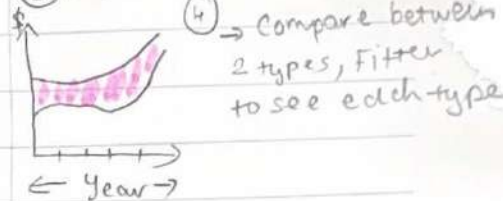 $
④ → Compare between
2 types, Fitter
to see each type
← Year →